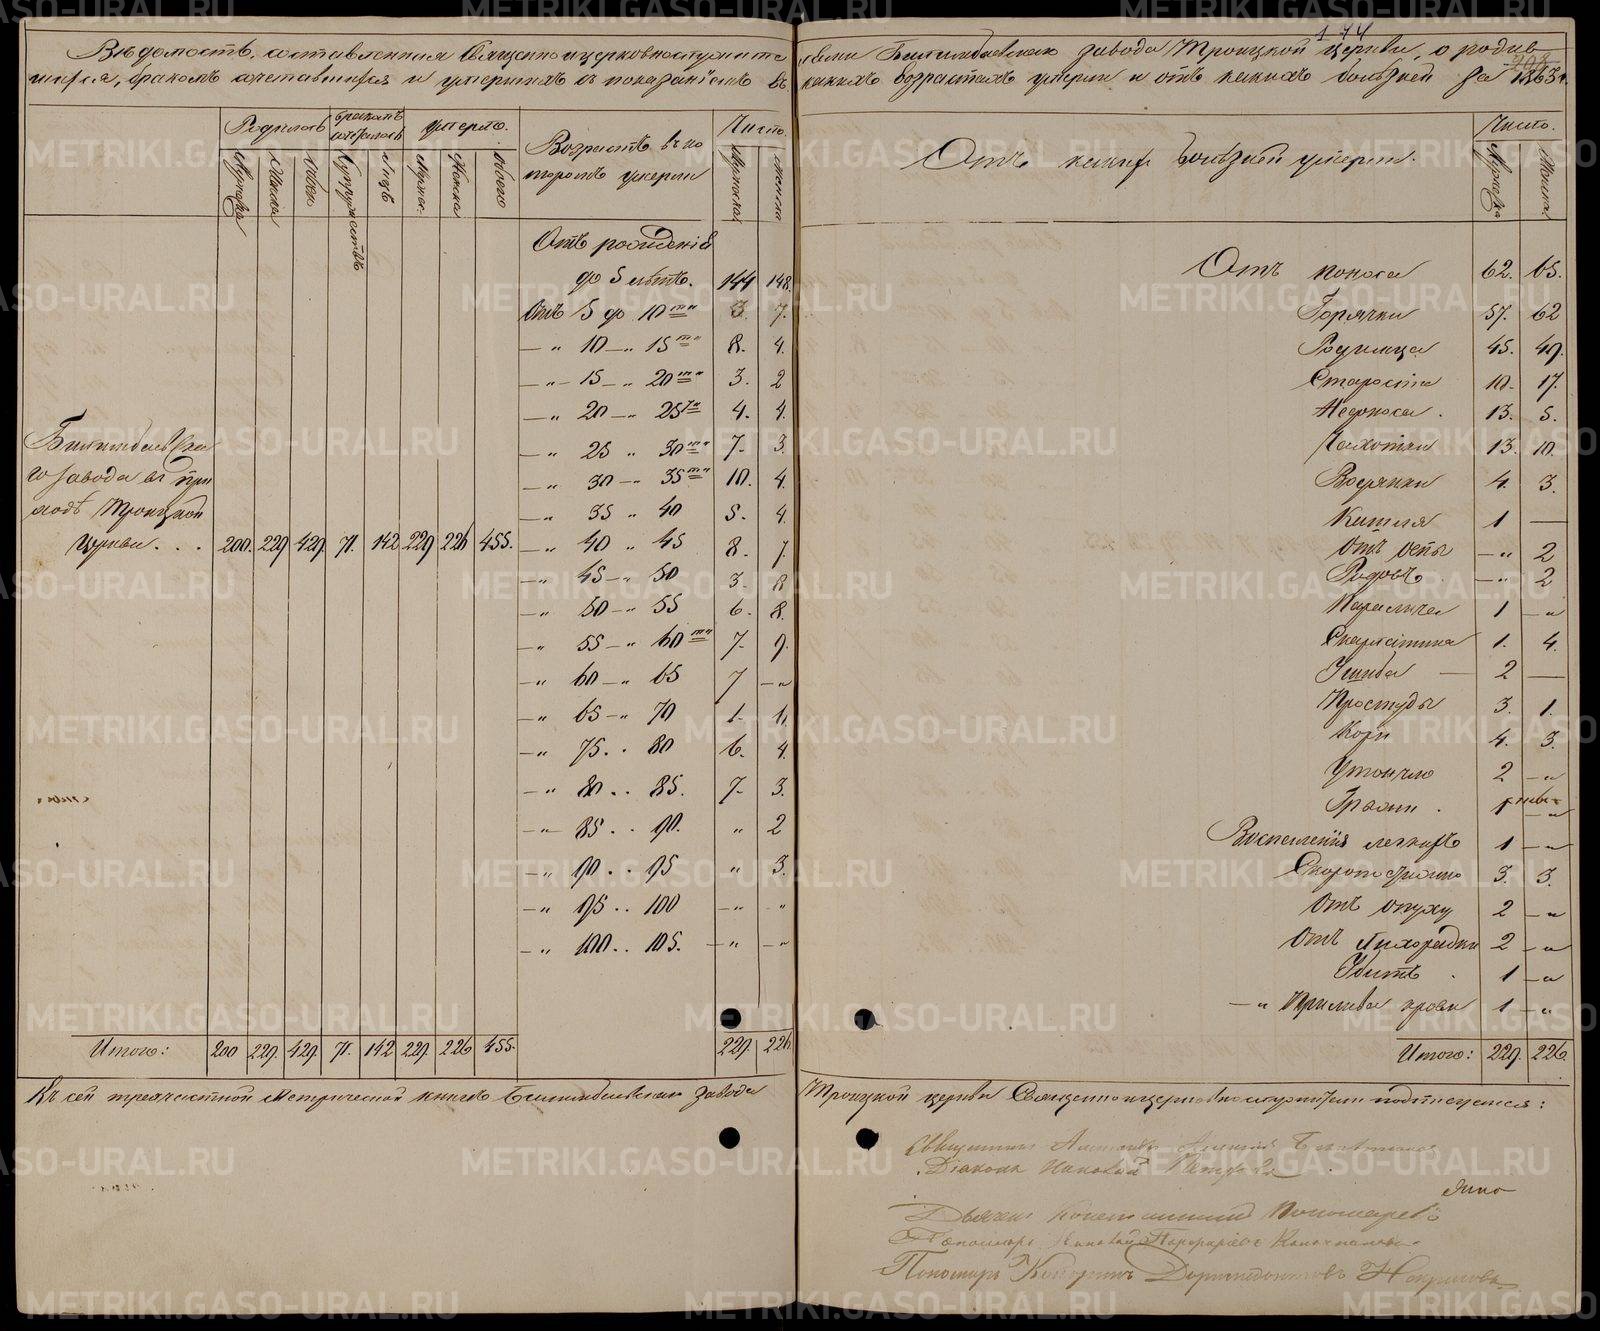 174
Вѣдомость, составленная Священноцерковнослужите
лями Билимбаевскаго завода Троицкой церкви, о родив
шихся, бракомъ сочетавшихся и умершихъ съ показанiемъ въ
какихъ возрастахъ умерли и отъ какихъ болѣзней за 1863 г.
Родилось
бракомъ
сочеталось
умерло.
Возрастъ въ ко
торомъ умерли
Число.
Мужска
Женска
Обоего
Супружествъ
Лицъ
Мужск.
Женска
Обоего
Мужска
Женска
Отъ рожденiя
до 5 лѣтъ. 144 148.
Отъ 5 до 10 ти 3. 7.
— „ 10 — „ 15 ти 8. 4.
— „ 15 — „ 20 ти 3. 2
— „ 20 — „ 25 ти 4. 4.
— „ 25 „ 30 ти 7. 3.
— „ 30 — „ 35 ти 10. 4.
— „ 35 „ 40 5. 4.
— „ 40 „ 45 8. 7.
— „ 45 — „ 50 3. 8
— „ 50 — „ 55 6. 8.
— „ 55 — „ 60 ти 7. 9.
— „ 60 — „ 65 7 — „
— „ 65 — „ 70 1.
— „ 75 . . 80 6. 4.
— „ 80 . . 85. 7. 3.
— „ 85 . . 90. „ 2
— „ 90 . . 95 „ 3.
— „ 95 . . 100 — „ „
— „ 100 . . 105. — „ — „
Билимбаевска
го завода въ при
ходѣ Троицкой
Церкви . . . 200. 229 429. 71. 142 229 226 455.
Итого: 200 229. 429. 71. 142 229. 226 455. 229. 226
Отъ какихъ болѣзней умерли.
Число.
Мужска
Женска
Отъ поноса 62. 65.
Горячки 57. 62
Родимца 45. 49.
Старости 10. 17.
Недоноса . 13. 5.
Чахотки 13. 10.
Водянки 4. 3.
Кашля 1 —
Отъ оспы — „ 2
Родовъ . — „ 2
Паралича 1 — „
Скарлатина 1. 4.
Ушиба — 2 —
Простуды 3. 1.
Кори 4. 3.
Утонуло 2 — „
Грыжи . 1 — „
Воспаленiя легкихъ 1 — „
Скоропостижно 3. 3.
Отъ опуху 2 — „
Отъ Лихорадки 2 — „
Убитъ . 1 — „
— „ Прилива крови 1 — „
Итого: 229. 226.
Къ сей троечастной Метрической книгѣ Билимбаевскаго завода
Троицкой церкви Священноцерковнослужители подписуемся:
Священникъ
Дiаконъ
Дьячекъ Константинъ Пономаревъ
Пономарь
Пономарь Доримедонтовъ Некрасовъ
METRIKI.GASO-URAL.RU